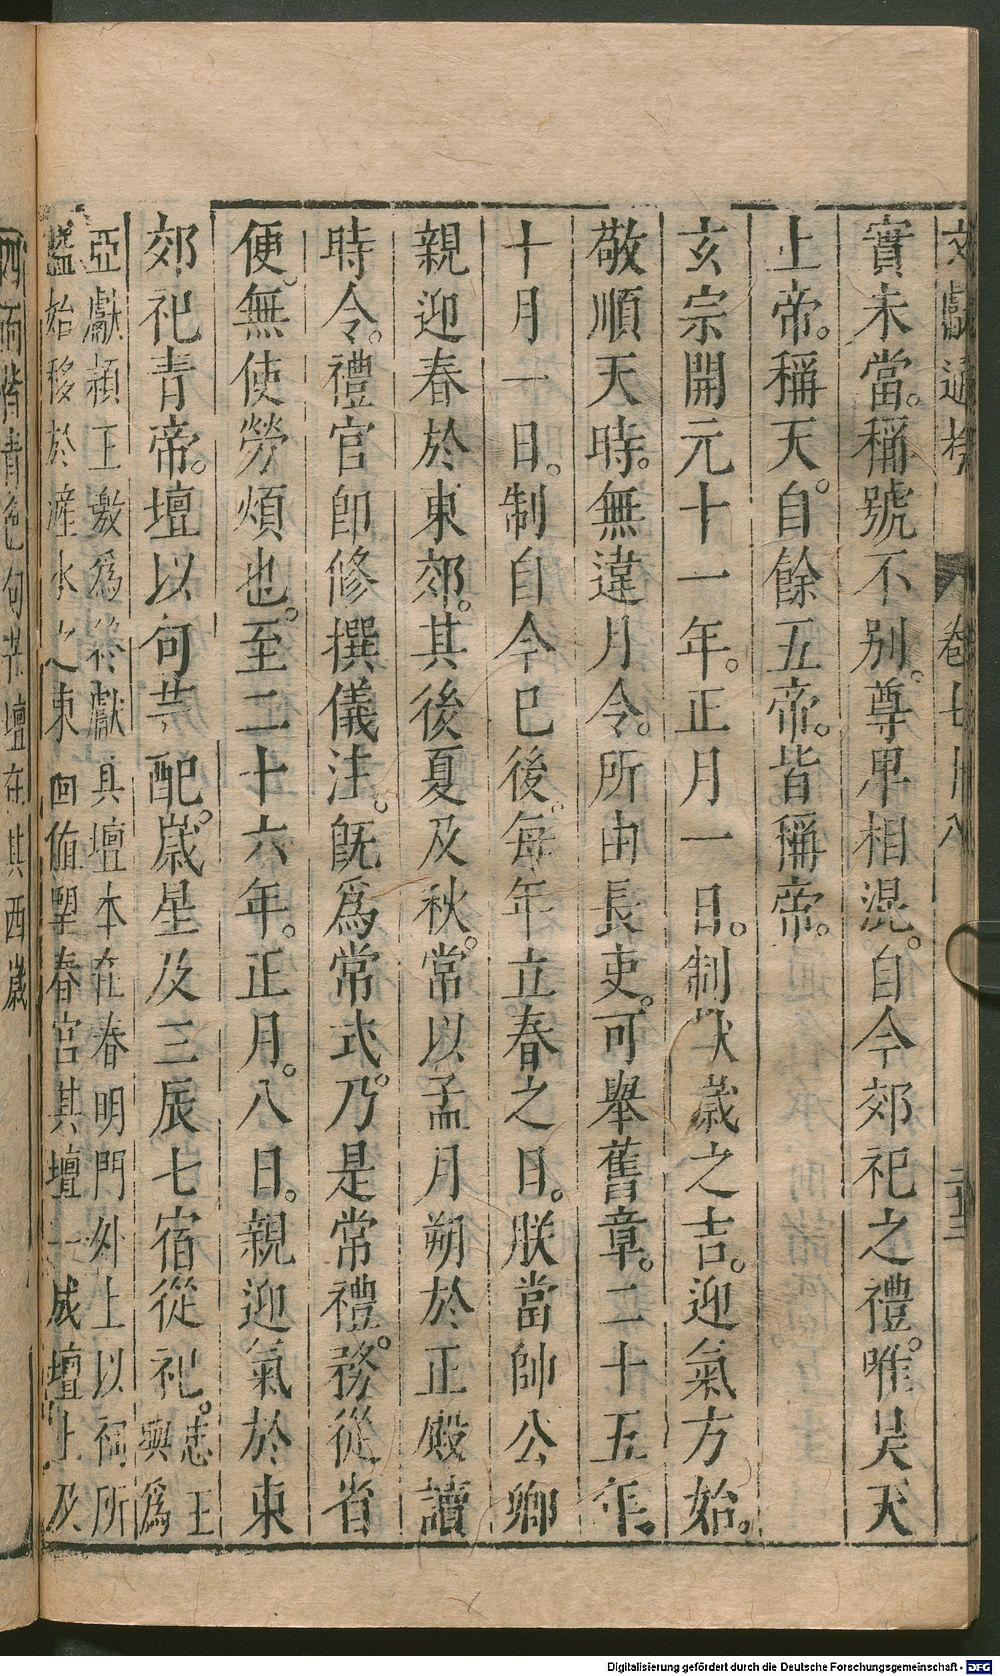 文獻通考 卷七十八 二十三
實未當。稱號不別。尊卑相混。自今郊祀之禮。唯昊天
上帝。稱天。自餘五帝。皆稱帝。
玄宗開元十一年。正月一日。制獻歲之吉。迎氣方始。
敬順天時。無違月令。所由長吏。可舉舊章。二十五年。
十月一日。制自今巳後。每年立春之日。朕當帥公卿
親迎春於東郊。其後夏及秋。常以孟月朔於正殿讀
時令。禮官卽修撰儀注。旣爲常式。乃是常禮。務從省
便。無使勞煩也。至二十六年。正月。八日。親迎氣於東
郊祀青帝。壇以句芒配。歲星及三辰七宿從祀。忠王
璵爲
亞獻潁王璬爲終獻其壇本在春明門外上以祠所
隘始移於滻水之東面值望春宮其壇一成壇上及
四面皆青色句芒壇在其西歲
Digitalisierung gefördert durch die Deutsche Forschungsgemeinschaft - DFG